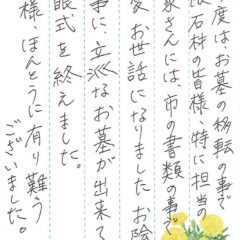 度は、お墓の移転の事で
石材の皆様、特に担当の
家さんには、市の書類の事で
変お世話になりました。お陰
事に、立派なお墓が出来て
眼式を終えました。
様、ほんとうに有り難う
ございました。